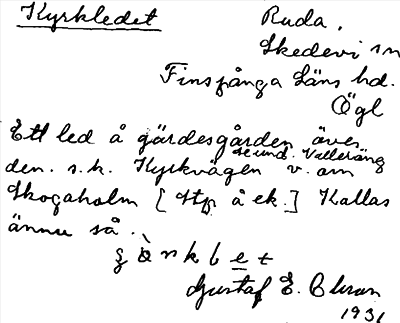 Kyrkledet Ruda.
Skedevi sn
Finspånga Läns hd.
Ögl
Ett led å gärdesgården över
se und. Valleräng
den s.k. Kyrkvägen v. om
Skogaholm [Htp å ek.] Kallas
ännu så.
Gustaf E. Olsson
1931